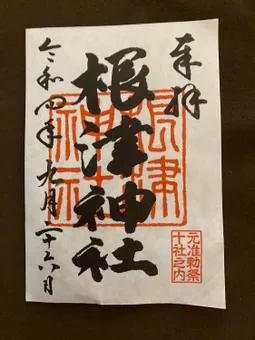 奉拝
根津神社
令和四年九月二十六日
根津神社
元准勅祭
十社之内